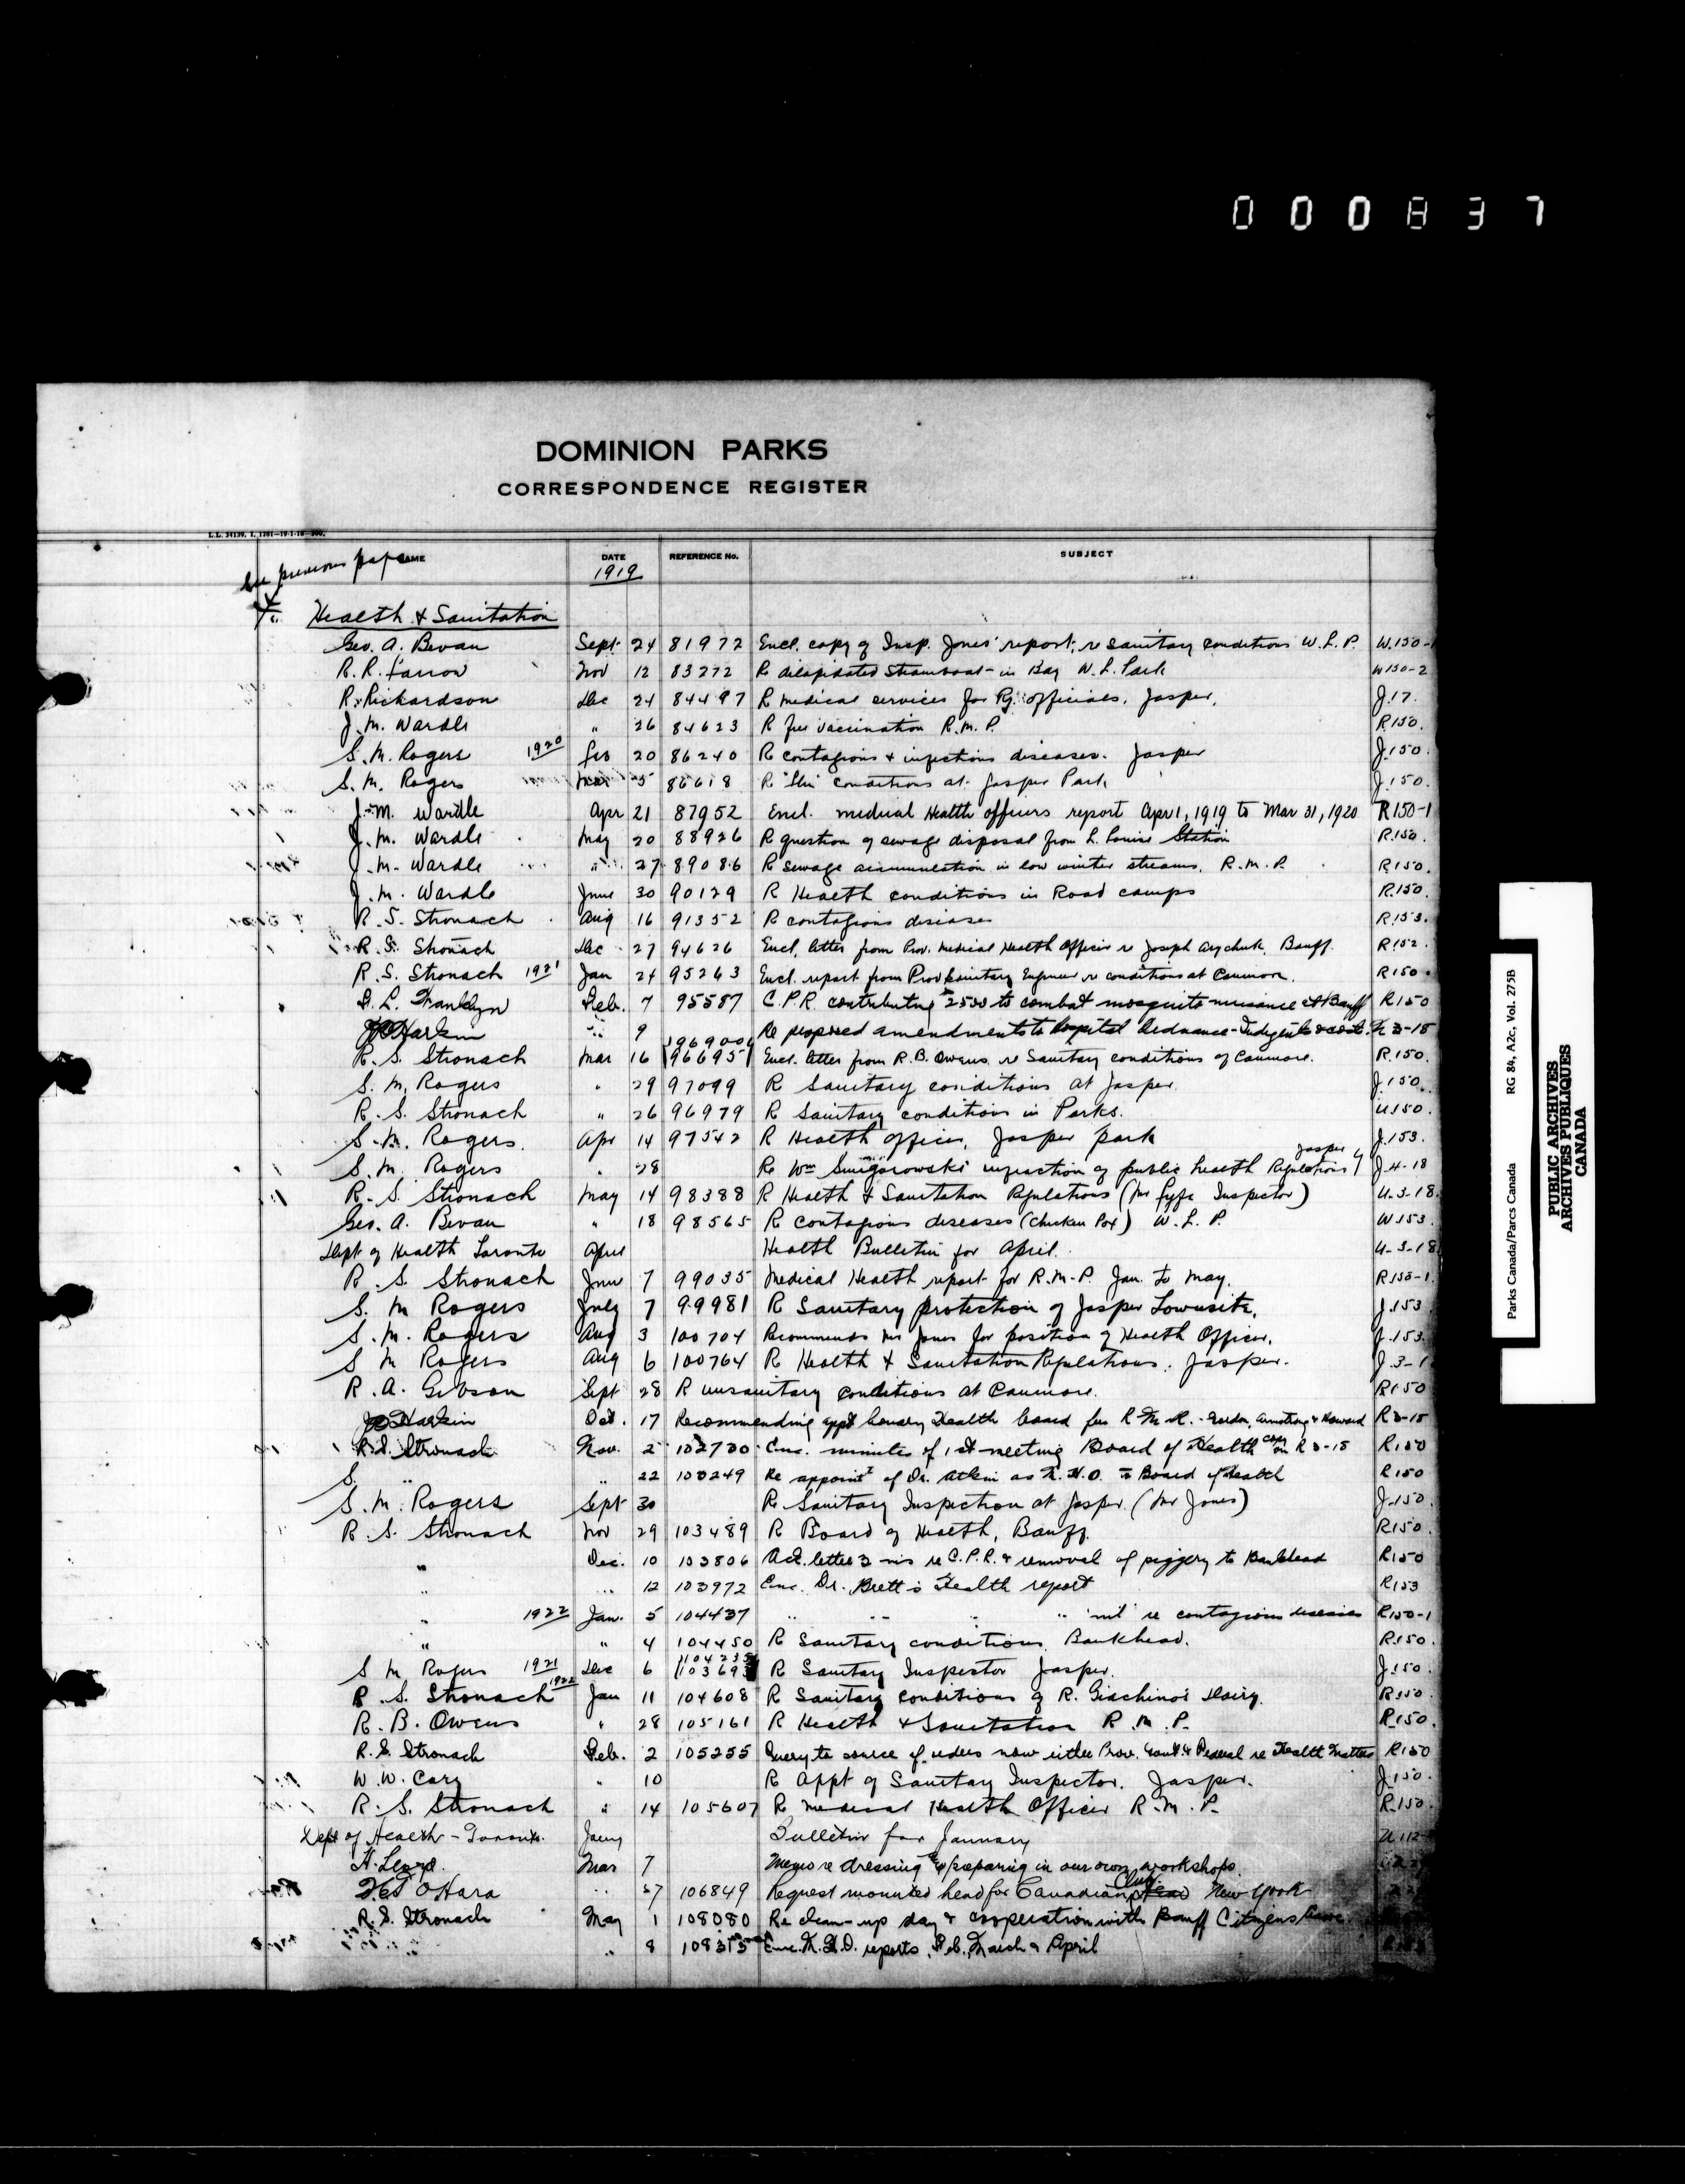 0 0 0 8 3 7
DOMINION PARKS
CORRESPONDENCE REGISTER
L.L. 34139. 1. 1201—19-1-18
See previous page
NAME DATE REFERENCE No. SUBJECT
1919
Health & Sanitation
Geo. A. Bevan Sept 24 81972 Encl. copy of Insp. Jones' report, re sanitary conditions W.L.P. W.150-1
R. R. Farrow Nov 12 83272 R dilapidated steamboat in Bay W.L. Park W150-2
R. Rickardson Dec 24 84497 R medical services for officials, Jasper. J.17.
J. M. Wardle " 26 84623 R free vaccination R.M.P. R150.
S. M. Rogers 1920 Feb 20 86240 R contagious & infectious diseases. Jasper J.150.
S. M. Rogers Mar 5 86618 R "flu" conditions at Jasper Park J.150.
J. M. Wardle Apr 21 87952 Encl. medical Health officers report Apr 1, 1919 to Mar 31, 1920 R150-1
J. M. Wardle May 20 88926 R question of sewage disposal from L. Louise Station R.150.
J. M. Wardle " 27 89086 R Sewage accumulation in low winter streams. R.M.P. R150.
J. M. Wardle June 30 90129 R Health conditions in Road camps R.150.
R. S. Stronach Aug 16 91352 R contagious diseases R.153.
R. S. Stronach Dec 27 94626 Encl. letter from Prov. Medical Health Officer re Joseph Banff. R152.
R. S. Stronach 1921 Jan 24 95263 Encl. report from Prov Sanitary Engineer re conditions at Canmore. R150.
L. Franklyn Feb. 7 95587 C.P.R. contributing $2500 to combat mosquito nuisance at Banff R150
JB Harkin " 9 Re proposed amendments to Hospital Ordnance - Indigents & cost. 3-18
R. S. Stronach Mar 16 966951 Encl. letter from R. B. Owens re Sanitary conditions of Canmore. R.150.
S. M. Rogers " 29 97099 R Sanitary conditions at Jasper J.150.
R. S. Stronach " 26 96979 R Sanitary conditions in Parks. U150.
S. M. Rogers Apr 14 97542 R Health officer, Jasper park J.153.
S. M. Rogers " 28 Re Wm infraction of public health Regulations Jasper J.4-18
R. S. Stronach May 14 98388 R Health & Sanitation Regulations (Mr Fyfe Inspector) U.3-18.
Geo. A. Bevan " 18 98565 R contagious diseases (Chicken Pox) W.L.P. W153.
Dept of Health Toronto April Health Bulletin for April. U-3-18
R. S. Stronach June 7 99035 Medical Health report for R.M.P. Jan. to May. R150-1.
S. M Rogers July 7 99981 R Sanitary protection of Jasper Townsite. J.153
S. M. Rogers Aug 3 100704 Recommends Mr Jones for position of Health Officer. J.153.
S M Rogers Aug 6 100764 R Health & Sanitation Regulations. Jasper. J.3-1
R. A. Gibson Sept 28 R unsanitary conditions at Canmore. R150
JB Harkin Oct. 17 Recommending appt honary Health board for R.M.R. - Gordon, Armstrong & Howard R3-18
R. S. Stronach Nov. 2 102730 Enc. minutes of 1st meeting Board of Health copy on R3-18 R150
S. " " 22 103249 Re appoint of Dr. Atkin as M.H.O. to Board of Health R150
S. M. Rogers Sept 30 Re Sanitary Inspection at Jasper. (Mr Jones) J.150.
R. S. Stronach Nov 29 103489 R Board of Health, Banff. R150.
" Dec. 10 103806 Ack. letter 3 re C.P.R. & removal of piggery to Bankhead R150
" " 12 103972 Enc. Dr. Brett's Health report R153
" 1922 Jan. 5 104437 " " " " 'nil' re contagious diseases R150-1
" " 4 104450 R Sanitary conditions, Bankhead. R150.
S M Rogers 1921 Dec 6 103693 104235 R Sanitary Inspector Jasper. J.150.
R. S. Stronach 1922 Jan 11 104608 R Sanitary conditions of R. Giachino's Dairy. R150.
R. B. Owens " 28 105161 R Health & Sanitation R.M.P. R.150.
R. S. Stronach Feb. 2 105255 Query to source of orders now either Prov. Govt & Federal re Health Matters R150
W. W. Cory " 10 R Appt of Sanitary Inspector. Jasper. J.150.
R. S. Stronach " 14 105607 R Medical Health Officer R.M.P. R.150.
Dept of Health - Toronto. Jany Bulletin for January U112
H. Lloyd. Mar 7 Memo re dressing & preparing in our own workshops.
O'Hara " 27 106849 Request mounted head for Canadian Club New York
R. S. Stronach May 1 108080 Re clean-up day & cooperation with Banff Citizens
" " 8 108315 Enc. M.H.O. reports, Feb. March & April
Parks Canada/Parcs Canada RG 84, A2c, Vol. 273B
PUBLIC ARCHIVES
ARCHIVES PUBLIQUES
CANADA